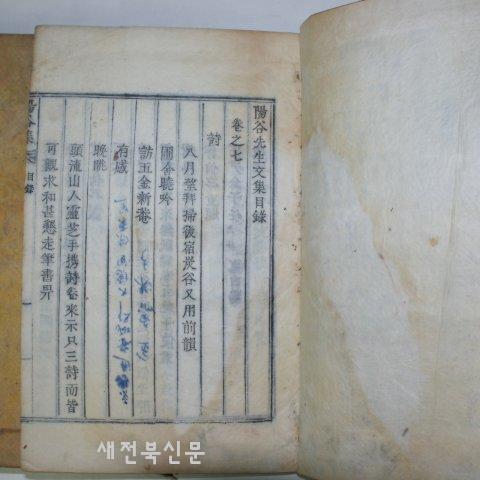 陽谷先生文集目錄
卷之七
詩
八月望拜掃後宿炭谷又用前韻
訪玉金新菴
有感
晩眺
頭流山人靈芝手携詩卷來示只三詩而皆
可觀求和甚懇走筆書畀
陽谷集 目錄
새전북신문